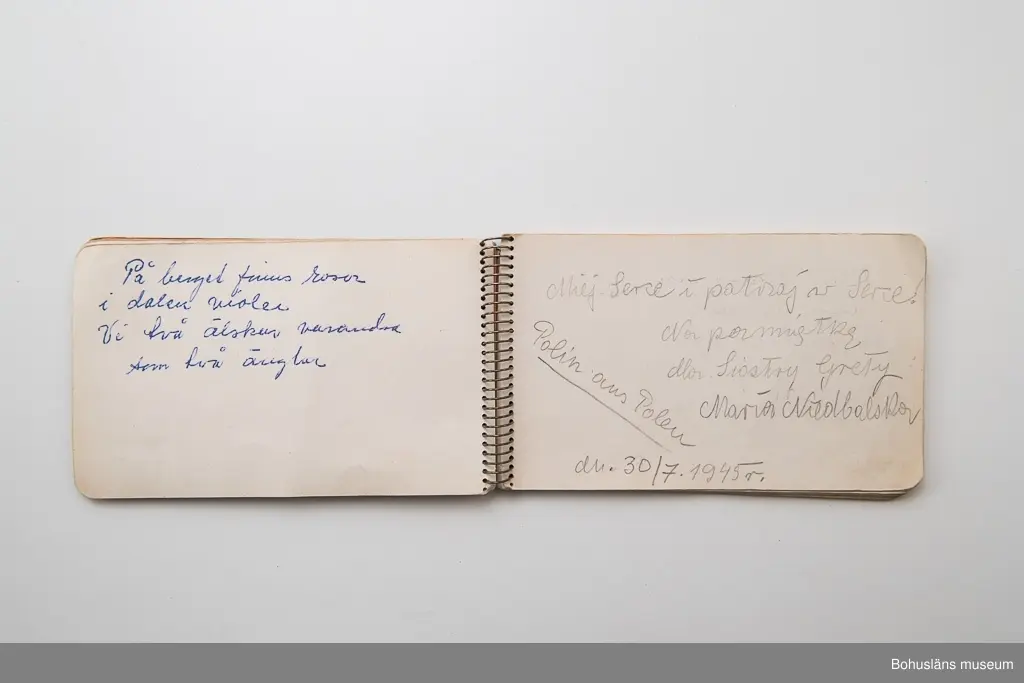 På berget finns rosor
i dalen violer
Vi två älskar varandra
som två änglar
Miéj. Serce i patrzaj w Serce!
Na pamiątkę
dla. Siostry Grety
Maria Niedbalska
Polin aus Polen
dn. 30/7. 1945r.
Bohusläns museum